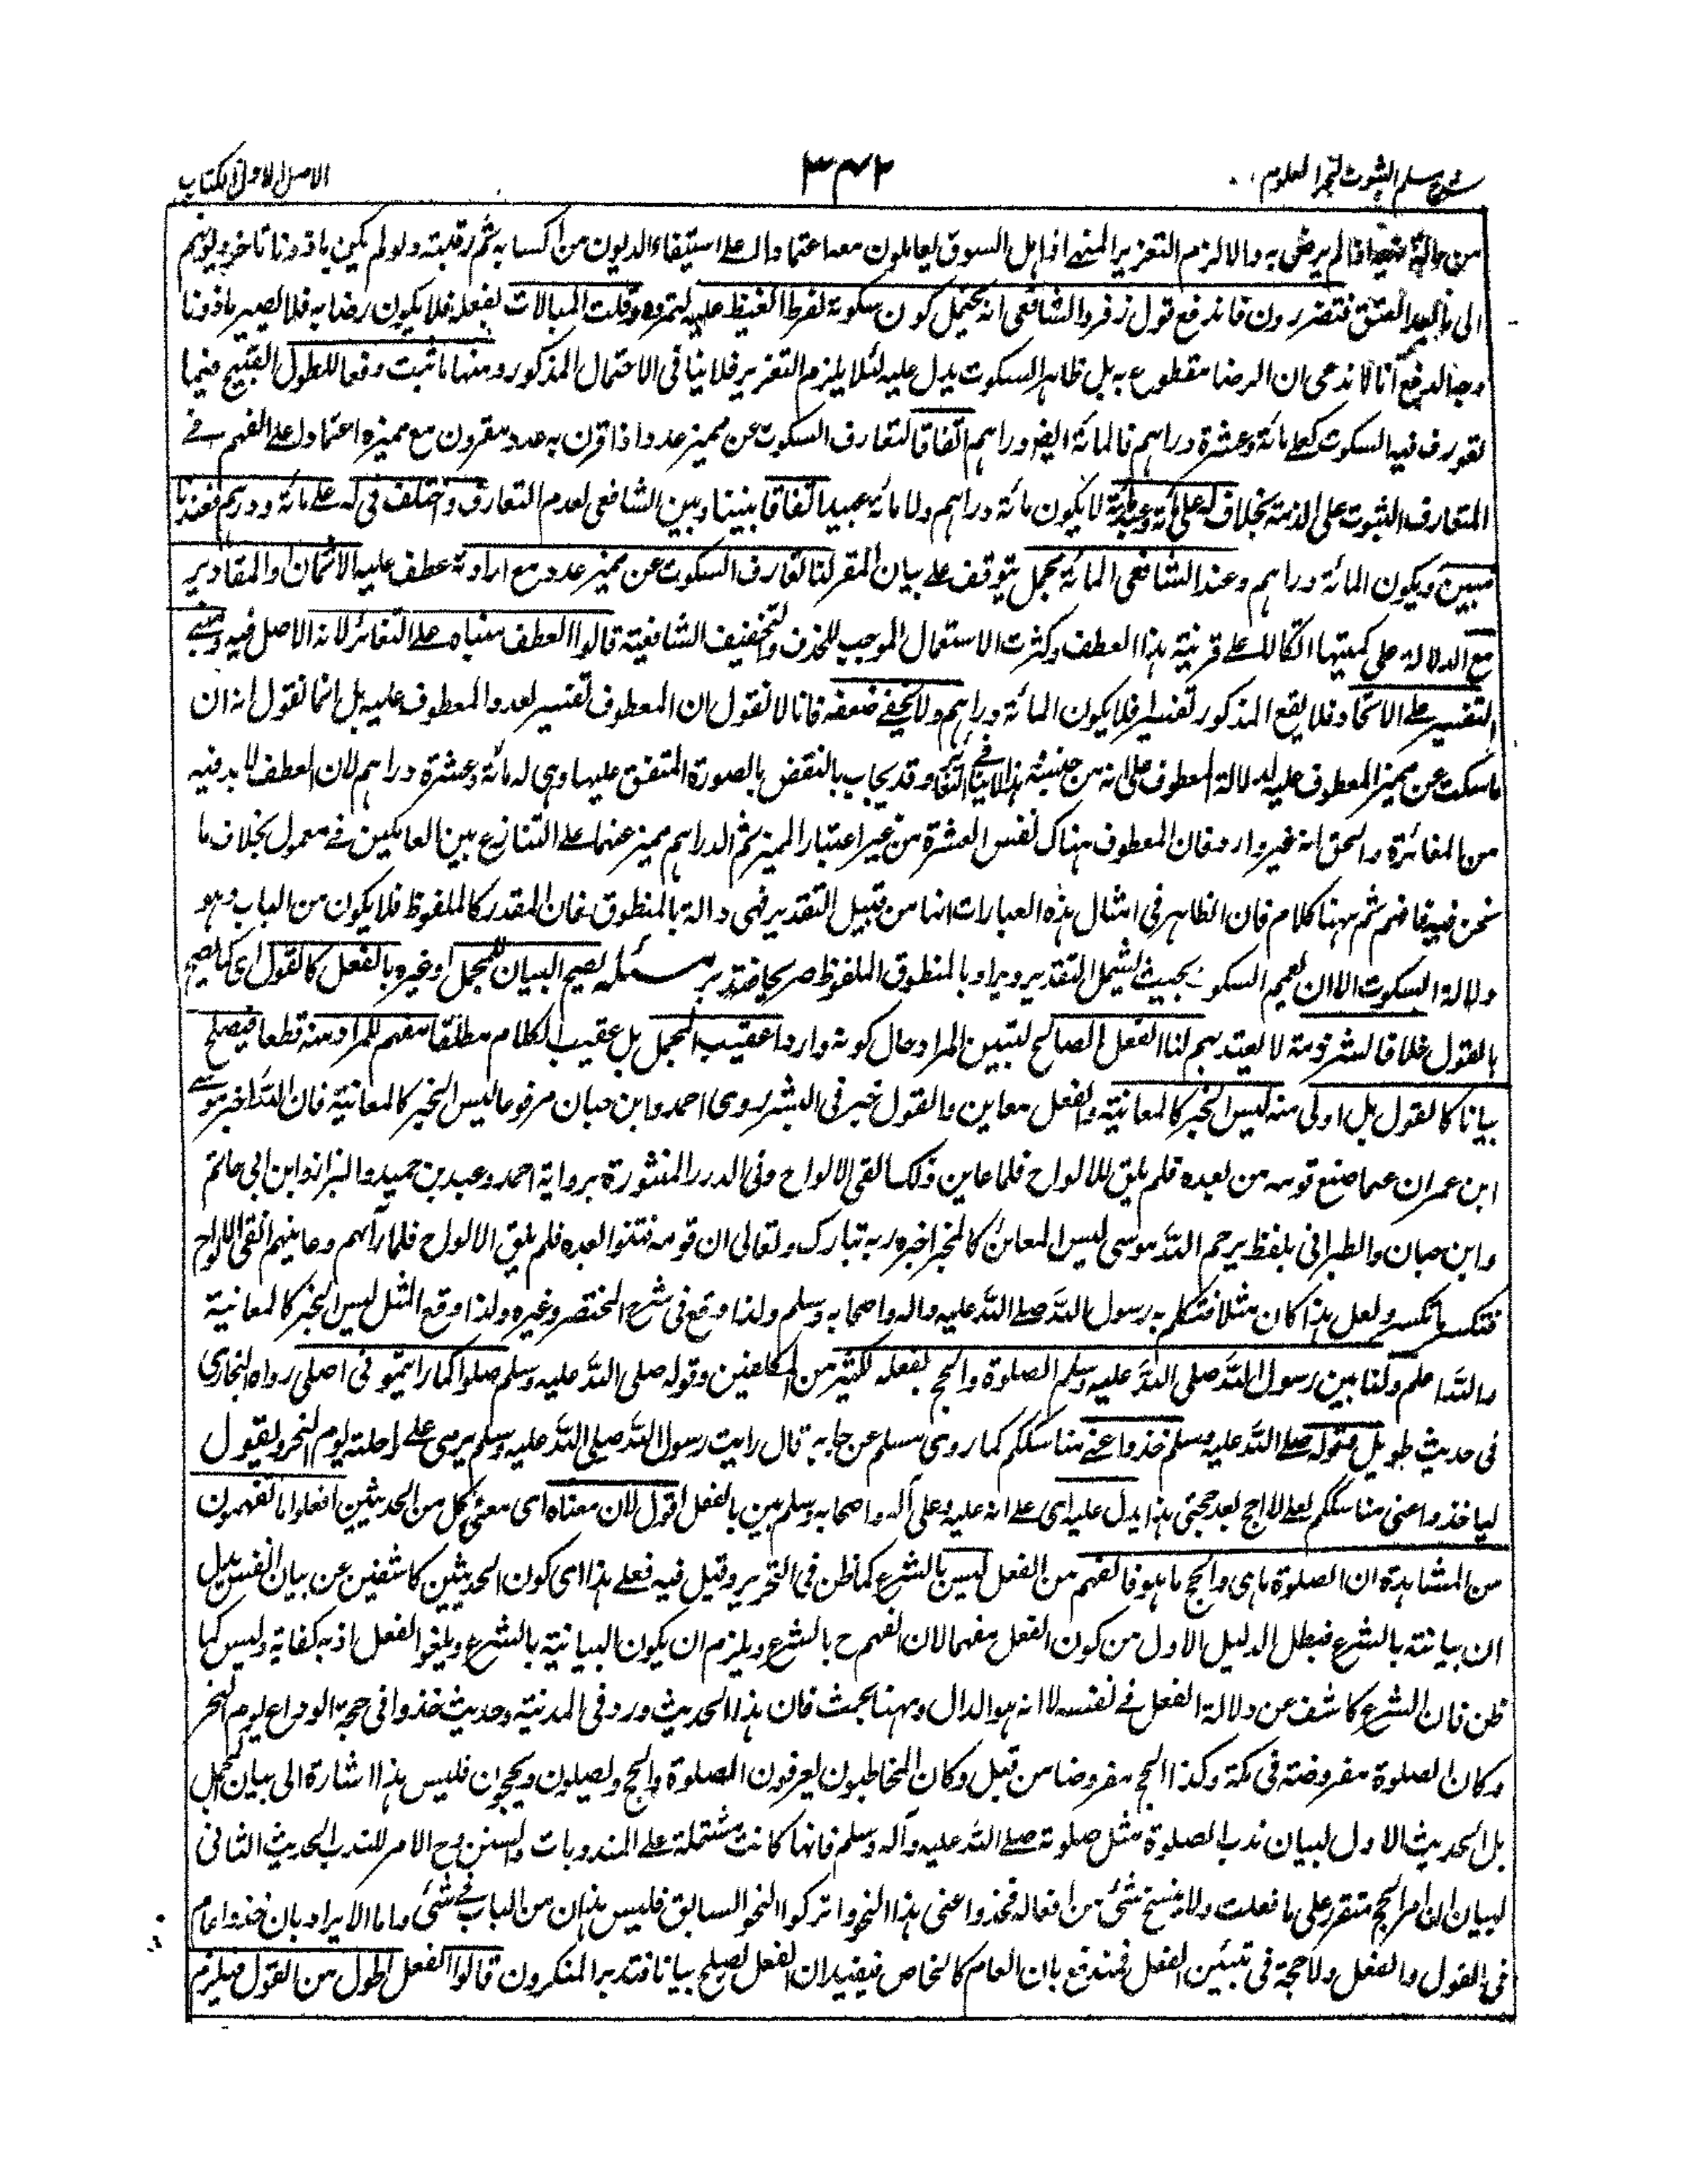 شرح مسلم الثبوت لبحر العلوم
٣٤٢
الاصل الاول الكتاب
من حاله منعه اذا لم يرض به والا لزم التغرير المنهى اذ اهل السوق يعاملون معه اعتمادا له على استيفاء الديون من اكسابه ثم رقبته ولو لم يكن ماذونا تاخر ديونهم
الى ما بعد العتق فتضررون فاندفع قول زفر والشافعى انه يحتمل كون سكوته لفرط الغيظ عليه لتمرده وقلت المبالات بفعله فلا يكون رضا به فلا يصير ماذونا
وجه الدفع انا لا ندعى ان الرضا مقطوع به بل ظاهر السكوت يدل عليه لئلا يلزم التغرير فلا ينافى الاحتمال المذكور ومنها ما ثبت دفعا للطول القبيح فيما
تعورف فيه السكوت كعلى مائة وعشرة دراهم فالمائة ايضا دراهم اتفاقا لتعارف السكوت عن مميز عدد اذا قرن به عدد مقرون مع مميزه اعتمادا على الفهم فى
المتعارف الثبوت على الذمة بخلاف له على مائة وعبد لا يكون مائة دراهم ولا مائة عبيد اتفاقا بيننا وبين الشافعى لعدم التعارف واختلف فى له على مائة ودرهم فعندنا
مبين ويكون المائة دراهم وعند الشافعى المائة مجمل يتوقف على بيان المقر لنا تعارف السكوت عن مميز عدد مع ارادته عطف عليه الاثمان او المقادير
مع الدلالة على كميتها اتكالا على قرينة هذا العطف وكثرت الاستعمال الموجب للحذف والتخفيف الشافعية قالوا العطف مبناه على التغائر لانه الاصل فيه ومبنى
التفسير على الاتحاد فلا يقع المذكور تفسيرا فلا يكون المائة دراهم ولا يخفى ضعفه فانا لا نقول ان المعطوف تفسير لعدد المعطوف عليه بل انما نقول انه ان
ما سكت عن مميز المعطوف عليه لدلالة المعطوف على انه من جنسه هذا لا ينافى التغائر وقد يجاب بالنقض بالصورة المتفق عليها وهى له مائة وعشرة دراهم لان العطف لا بد فيه
من المغائرة والحق انه غير وارد فان المعطوف هناك نفس العشرة من غير اعتبار المميز ثم الدراهم مميز عنهما على التنازع بين العاملين فى معمول بخلاف ما
نحن فيه فافهم ثم ههنا كلام فان الظاهر فى امثال هذه العبارات انها من قبيل التقدير فهى دالة بالمنطوق فان المقدر كالملفوظ فلا يكون من الباب وهو
دلالة السكوت الا ان يعمم السكوت بحيث يشمل التقدير ويراد بالمنطوق الملفوظ صريحا فتدبر مسئله يصح البيان للمجمل او غيره بالفعل كالقول اى كما يصح
بالقول خلافا لشرذمة لا يعتد بهم لنا الفعل الصالح لتبيين المراد حال كونه واردا عقيب المجمل بل عقيب الكلام مطلقا مفهم للمراد منه قطعا فيصلح
بيانا كالقول بل اولى منه ليس الخبر كالمعاينة والفعل معاين والقول خبر فى البشر روى احمد وابن حبان مرفوعا ليس الخبر كالمعاينة فان الله اخبر موسى
ابن عمران عما صنع قومه من بعده فلم يلق الالواح فلما عاين ذلك القى الالواح وفى الدرر المنثورة برواية احمد وعبد بن حميد والبزار وابن ابى حاتم
وابن حبان والطبرانى بلفظ يرحم الله موسى ليس المعاين كالمخبر اخبره ربه تبارك وتعالى ان قومه فتنوا بعده فلم يلق الالواح فلما رآهم وعاينهم القى الالواح
فتكسر ما تكسر ولعل هذا كان مثلا فتكلم به رسول الله صلى الله عليه واله واصحابه وسلم ولذا وقع فى شرح المختصر وغيره ولذا وقع المثل ليس الخبر كالمعاينة
والله اعلم ولنا بين رسول الله صلى الله عليه وسلم الصلوة والحج بفعله لكثير من المكلفين وقوله صلى الله عليه وسلم صلوا كما رايتمو فى اصلى رواه البخارى
فى حديث طويل وقوله صلى الله عليه وسلم خذوا عنى مناسككم كما روى مسلم عن جابر قال رايت رسول الله صلى الله عليه وسلم يرمى على راحلته يوم النحر ويقول
لياخذوا عنى مناسككم لعلى لا احج بعد حجتى هذا يدل عليه اى على انه عليه وعلى آله واصحابه وسلم بين بالفعل اقول لان معناه اى معنى كل من الحديثين افعلوا ما تفهمون
من المشاهدة ان الصلوة ما هى والحج ما هو فالفهم من الفعل ليس بالشرع كما ظن فى التحرير وقيل فيه فعلى هذا اى كون الحديثين كاشفين عن بيان الفعل بل
ان بيانته بالشرع فبطل الدليل الاول من كون الفعل مفهما لان الفهم ح بالشرع ويلزم ان يكون البيانية بالشرع ويلغو الفعل اذ به كفاية وليس كما
ظن فان الشرع كاشف عن دلالة الفعل فى نفسه لا انه هو الدال وههنا بحث فان هذا الحديث ورد فى المدنية وحديث خذوا فى حجة الوداع يوم النحر
وكان الصلوة مفروضة فى مكة وكذا الحج مفروضا من قبل وكان المخاطبون يعرفون الصلوة والحج ويصلون ويحجون فليس هذا اشارة الى بيان المجمل
بل الحديث الاول لبيان ندب الصلوة مثل صلوته صلى الله عليه وآله وسلم فانها كانت مشتملة على المندوبات والسنن وح الامر للندب الحديث الثانى
لبيان ان امر الحج متقرر على ما فعلت ولا ينسخ شئ من افعاله فخذوا عنى هذا النحو واتركوا النحو السابق فليس هذان من الباب فى شئ واما الايراد بان خذوا عام
فى القول والفعل ولا حجة فى تبئين الفعل فمندفع بان العام كالخاص فيفيد ان الفعل يصلح بيانا فتدبر المنكرون قالوا الفعل اطول من القول فيلزم